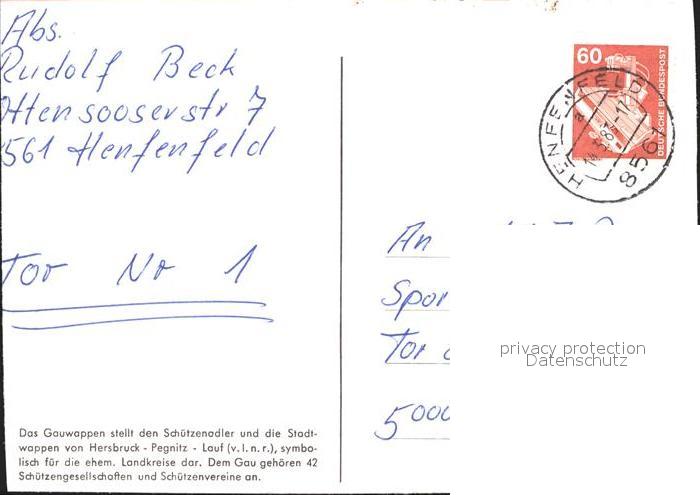 Abs.
Rudolf Beck
Ottensooserstr 7
8561 Henfenfeld
Tor Nr 1
Das Gauwappen stellt den Schützenadler und die Stadt-
wappen von Hersbruck - Pegnitz - Lauf (v. l. n. r.), symbo-
lisch für die ehem. Landkreise dar. Dem Gau gehören 42
Schützengesellschaften und Schützenvereine an.
60
DEUTSCHE BUNDESPOST
HENFENFELD
a
8561
An
Spor
Tor
5000
privacy protection
Datenschutz